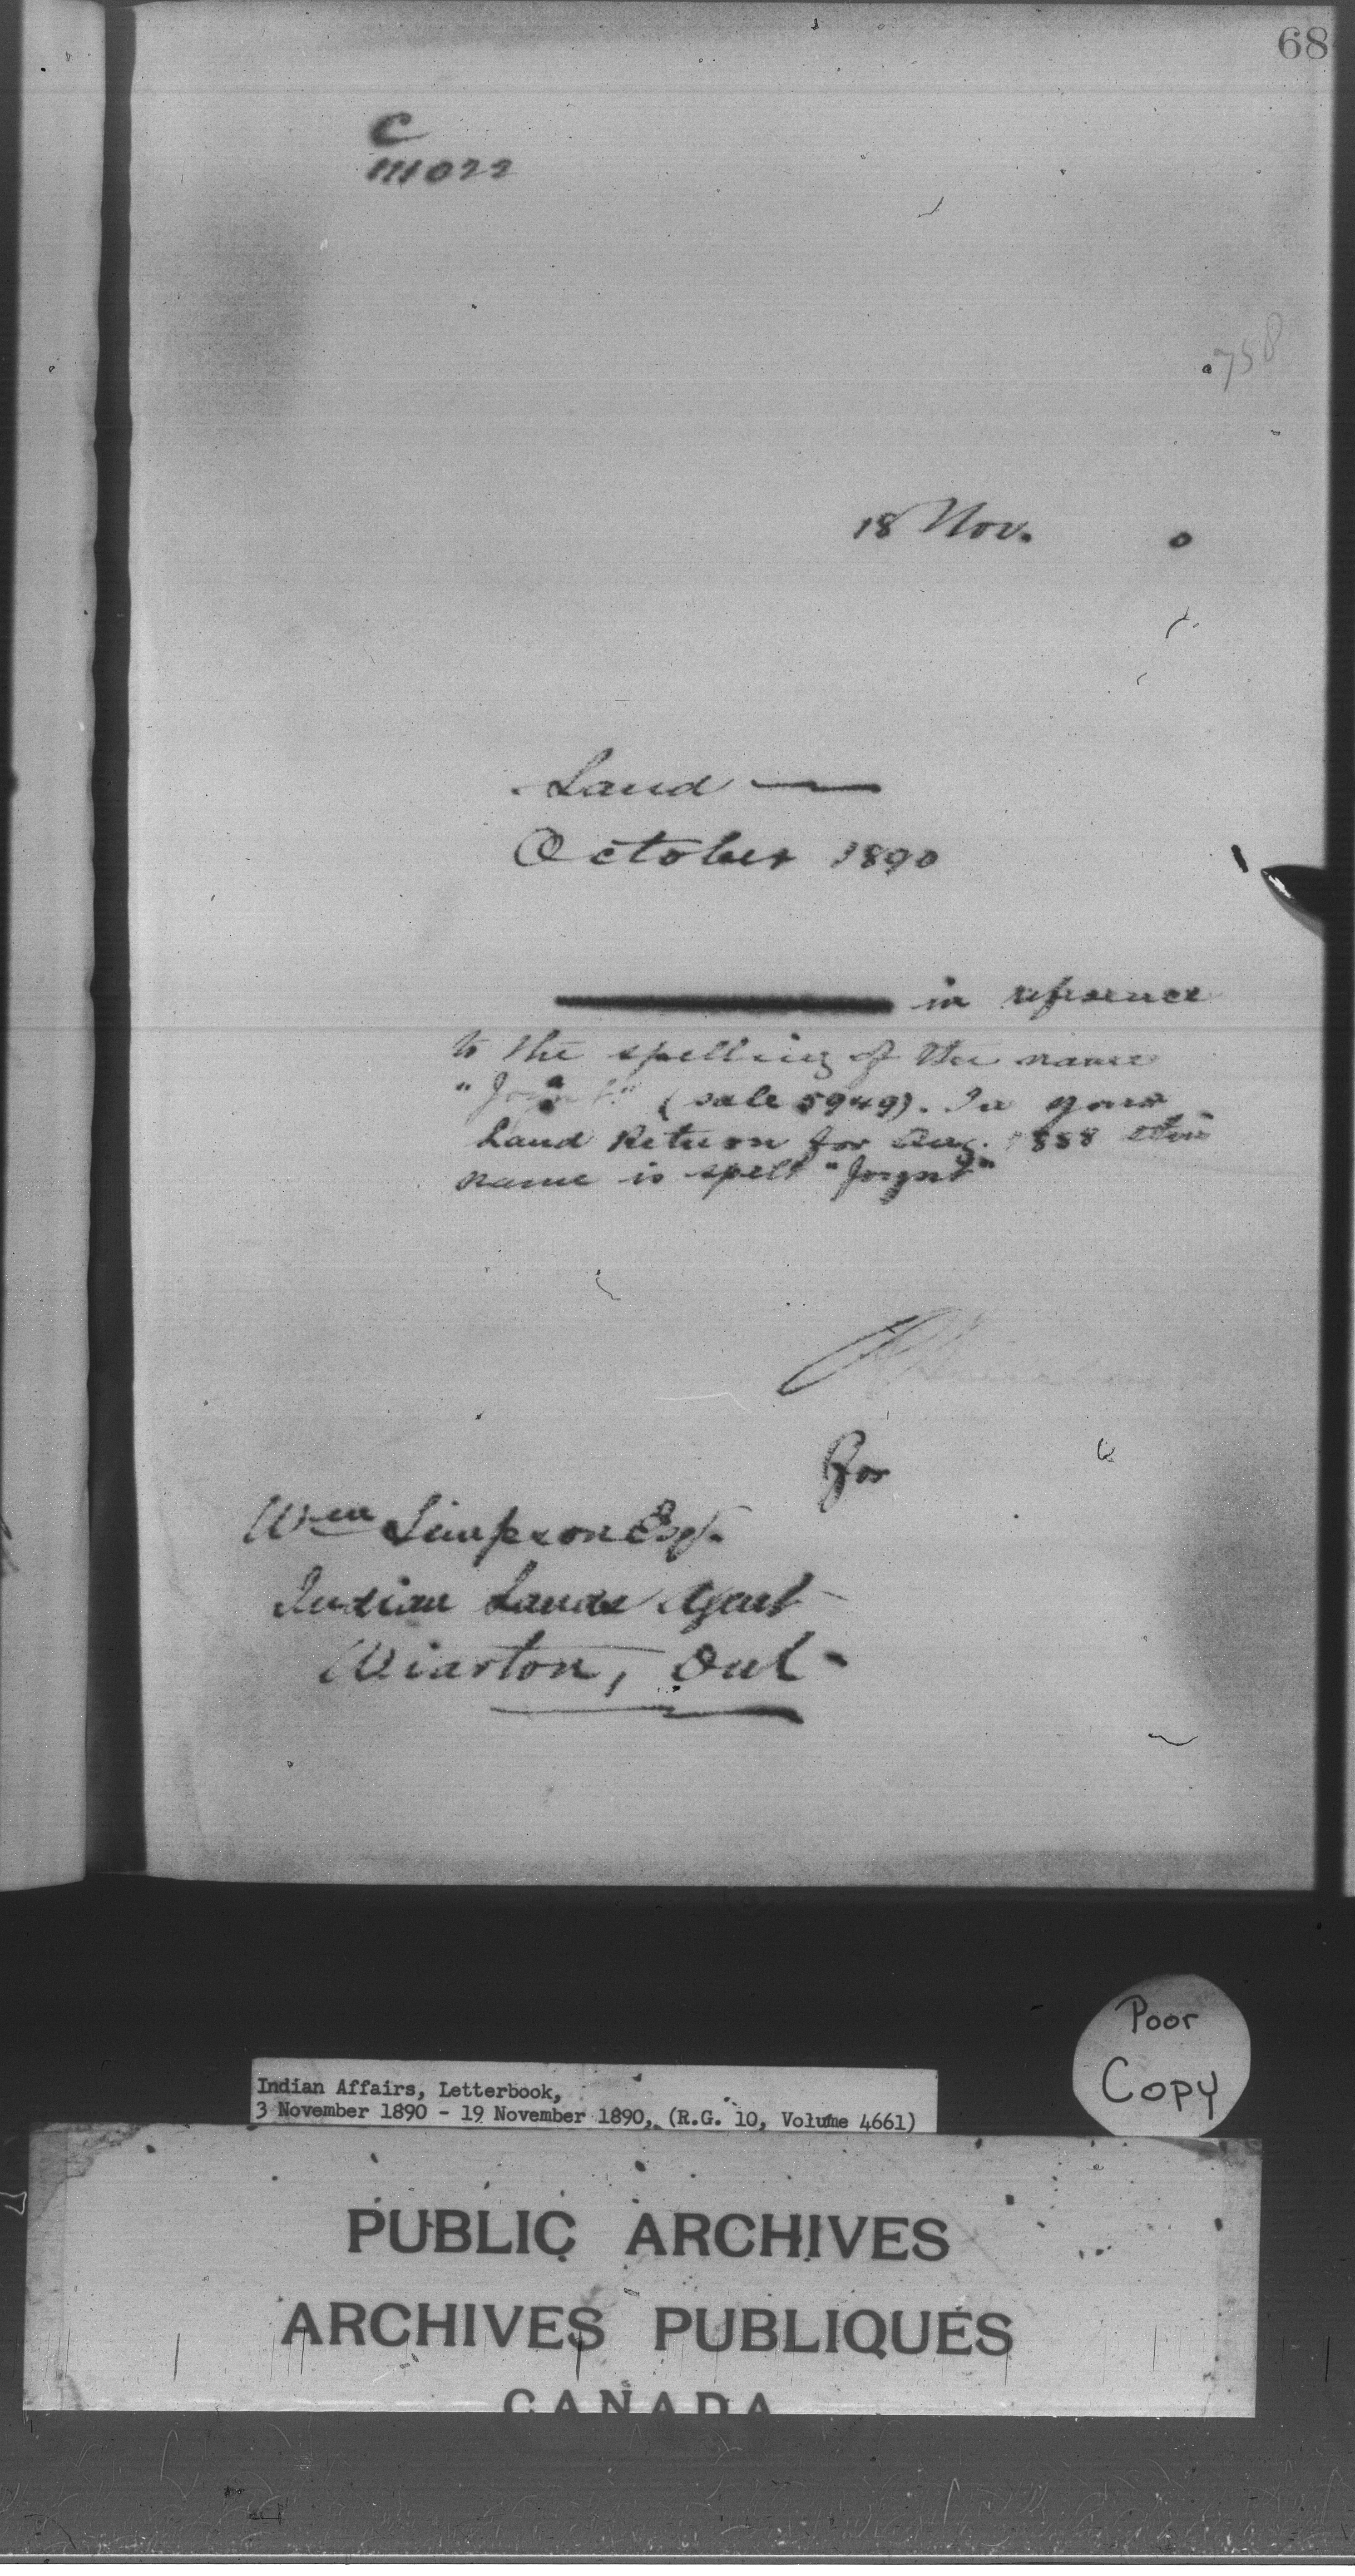 68
C
111022
758
18 Nov. 0
Land —
October 1890
in reference
to the spelling of the name
"Joynt" (sale 5949). In your
Land Return for Aug. 1888 this
name is spelt "Joynt"
for
Wm Simpson Esq.
Indian Lands Agent
Wiarton, Ont.
Poor
Copy
Indian Affairs, Letterbook,
3 November 1890 - 19 November 1890, (R.G. 10, Volume 4661)
PUBLIC ARCHIVES
ARCHIVES PUBLIQUES
CANADA